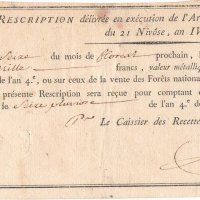 RESCRIPTION délivrée en exécution de l'Ar
du 21 Nivôse, an IV
Seize du mois de floréal prochain, l
mille francs, valeur métalliq
de l'an 4.e, ou sur ceux de la vente des Forêts national
présente Rescription sera reçue pour comptant e
le Seize pluviose de l'an 4.e d
Pr Le Caissier des Recette